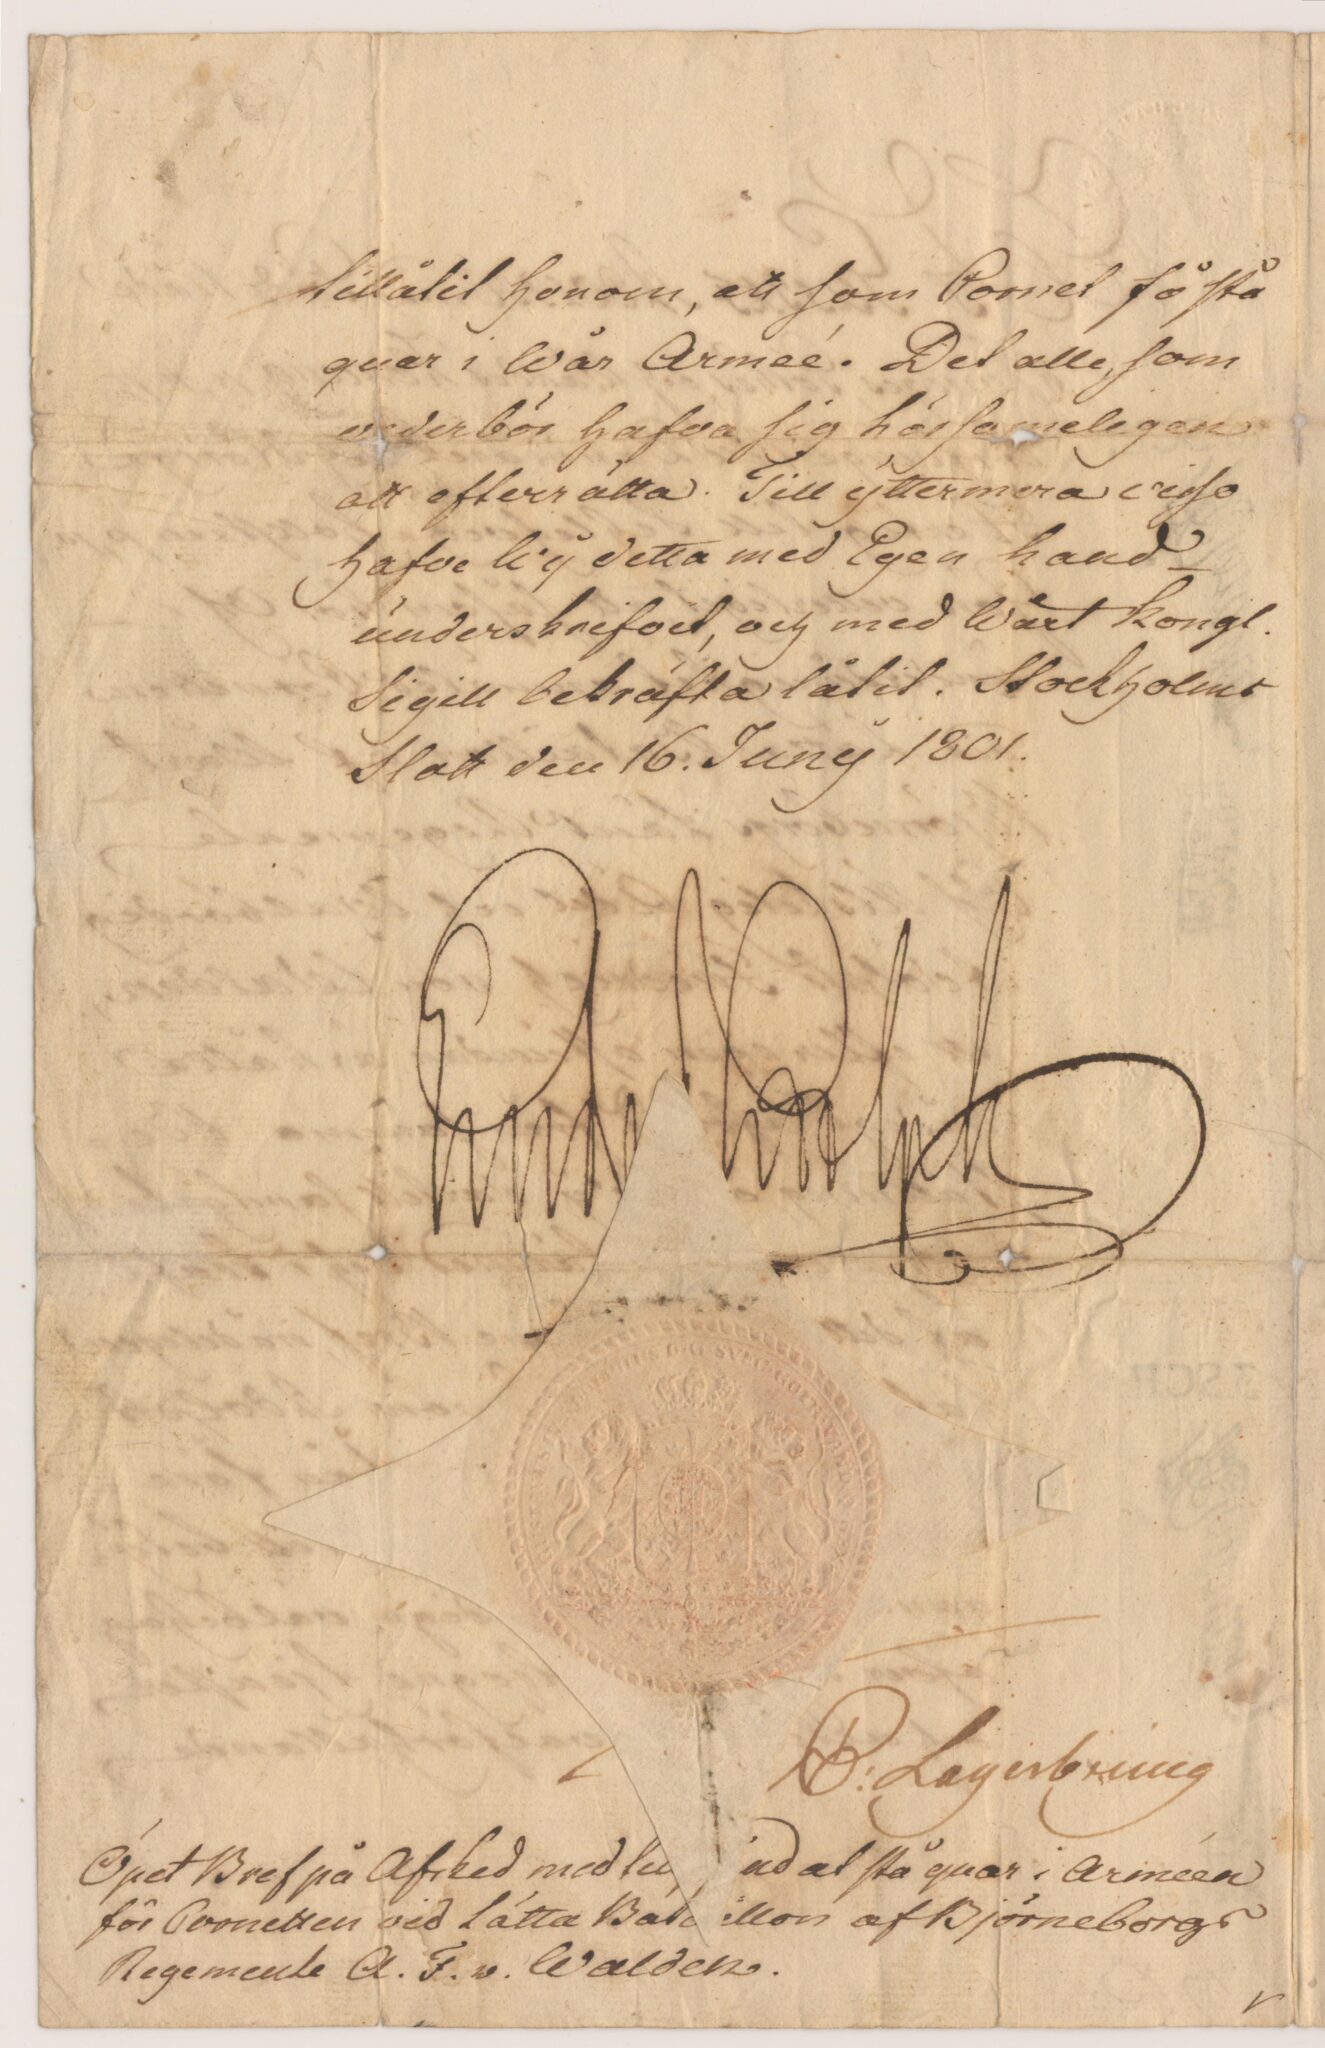 tillåtit honom, att som Cornet få stå
quar i Wår Armeé. Det alle, som
vederbör hafva sig hörsameligen
att efterrätta. Till ÿttermera visso
hafve Wÿ detta med Egen hand
underskrifvit, och med Wårt Kongl.
Sigill bekräfta låtit. Stockholms
Slott den 16. Junÿ 1801.
Gustaf Adolph
B: Lagerbring
Öpet Bref på Afsked med ud at stå quar i Arméen
för Cornetten vid Lätta Bat illon af Björneborgs
Regemente A. F. v. Walden.